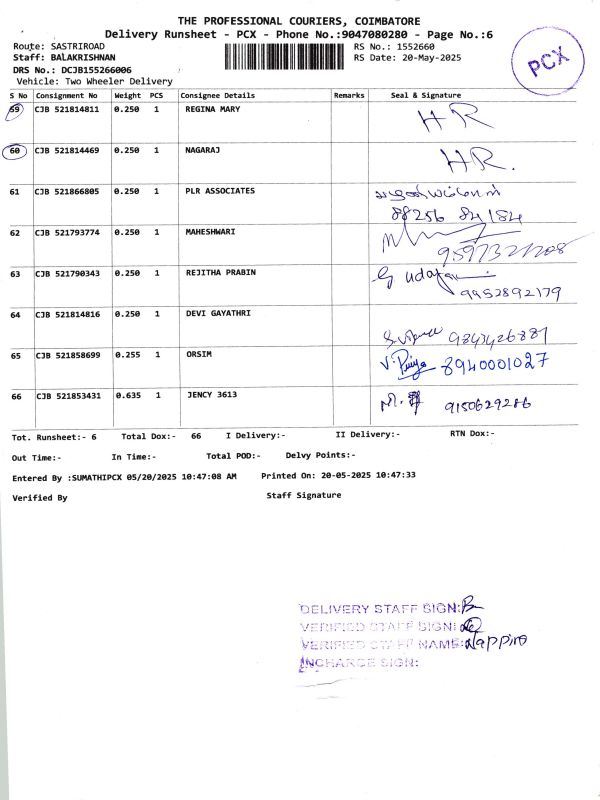 THE PROFESSIONAL COURIERS, COIMBATORE
Delivery Runsheet - PCX - Phone No.:9047080280 - Page No.:6
Route: SASTRIROAD
RS No.: 1552660
Staff: BALAKRISHNAN
RS Date: 20-May-2025
DRS No.: DCJB155266006
Vehicle: Two Wheeler Delivery
PCX
S No Consignment No Weight PCS Consignee Details Remarks Seal & Signature
59 CJB 521814811 0.250 1 REGINA MARY HR
60 CJB 521814469 0.250 1 NAGARAJ HR.
61 CJB 521866805 0.250 1 PLR ASSOCIATES
88256 84184
62 CJB 521793774 0.250 1 MAHESHWARI
63 CJB 521790343 0.250 1 REJITHA PRABIN
9952892179
64 CJB 521814816 0.250 1 DEVI GAYATHRI
65 CJB 521858699 0.255 1 ORSIM V. Priya 8940001027
66 CJB 521853431 0.635 1 JENCY 3613 9150629286
Tot. Runsheet:- 6 Total Dox:- 66 I Delivery:- II Delivery:- RTN Dox:-
Out Time:- In Time:- Total POD:- Delvy Points:-
Entered By :SUMATHIPCX 05/20/2025 10:47:08 AM Printed On: 20-05-2025 10:47:33
Verified By Staff Signature
DELIVERY STAFF SIGN:
VERIFIED STAFF SIGN:
VERIFIED STAFF NAME:
INCHARGE SIGN: